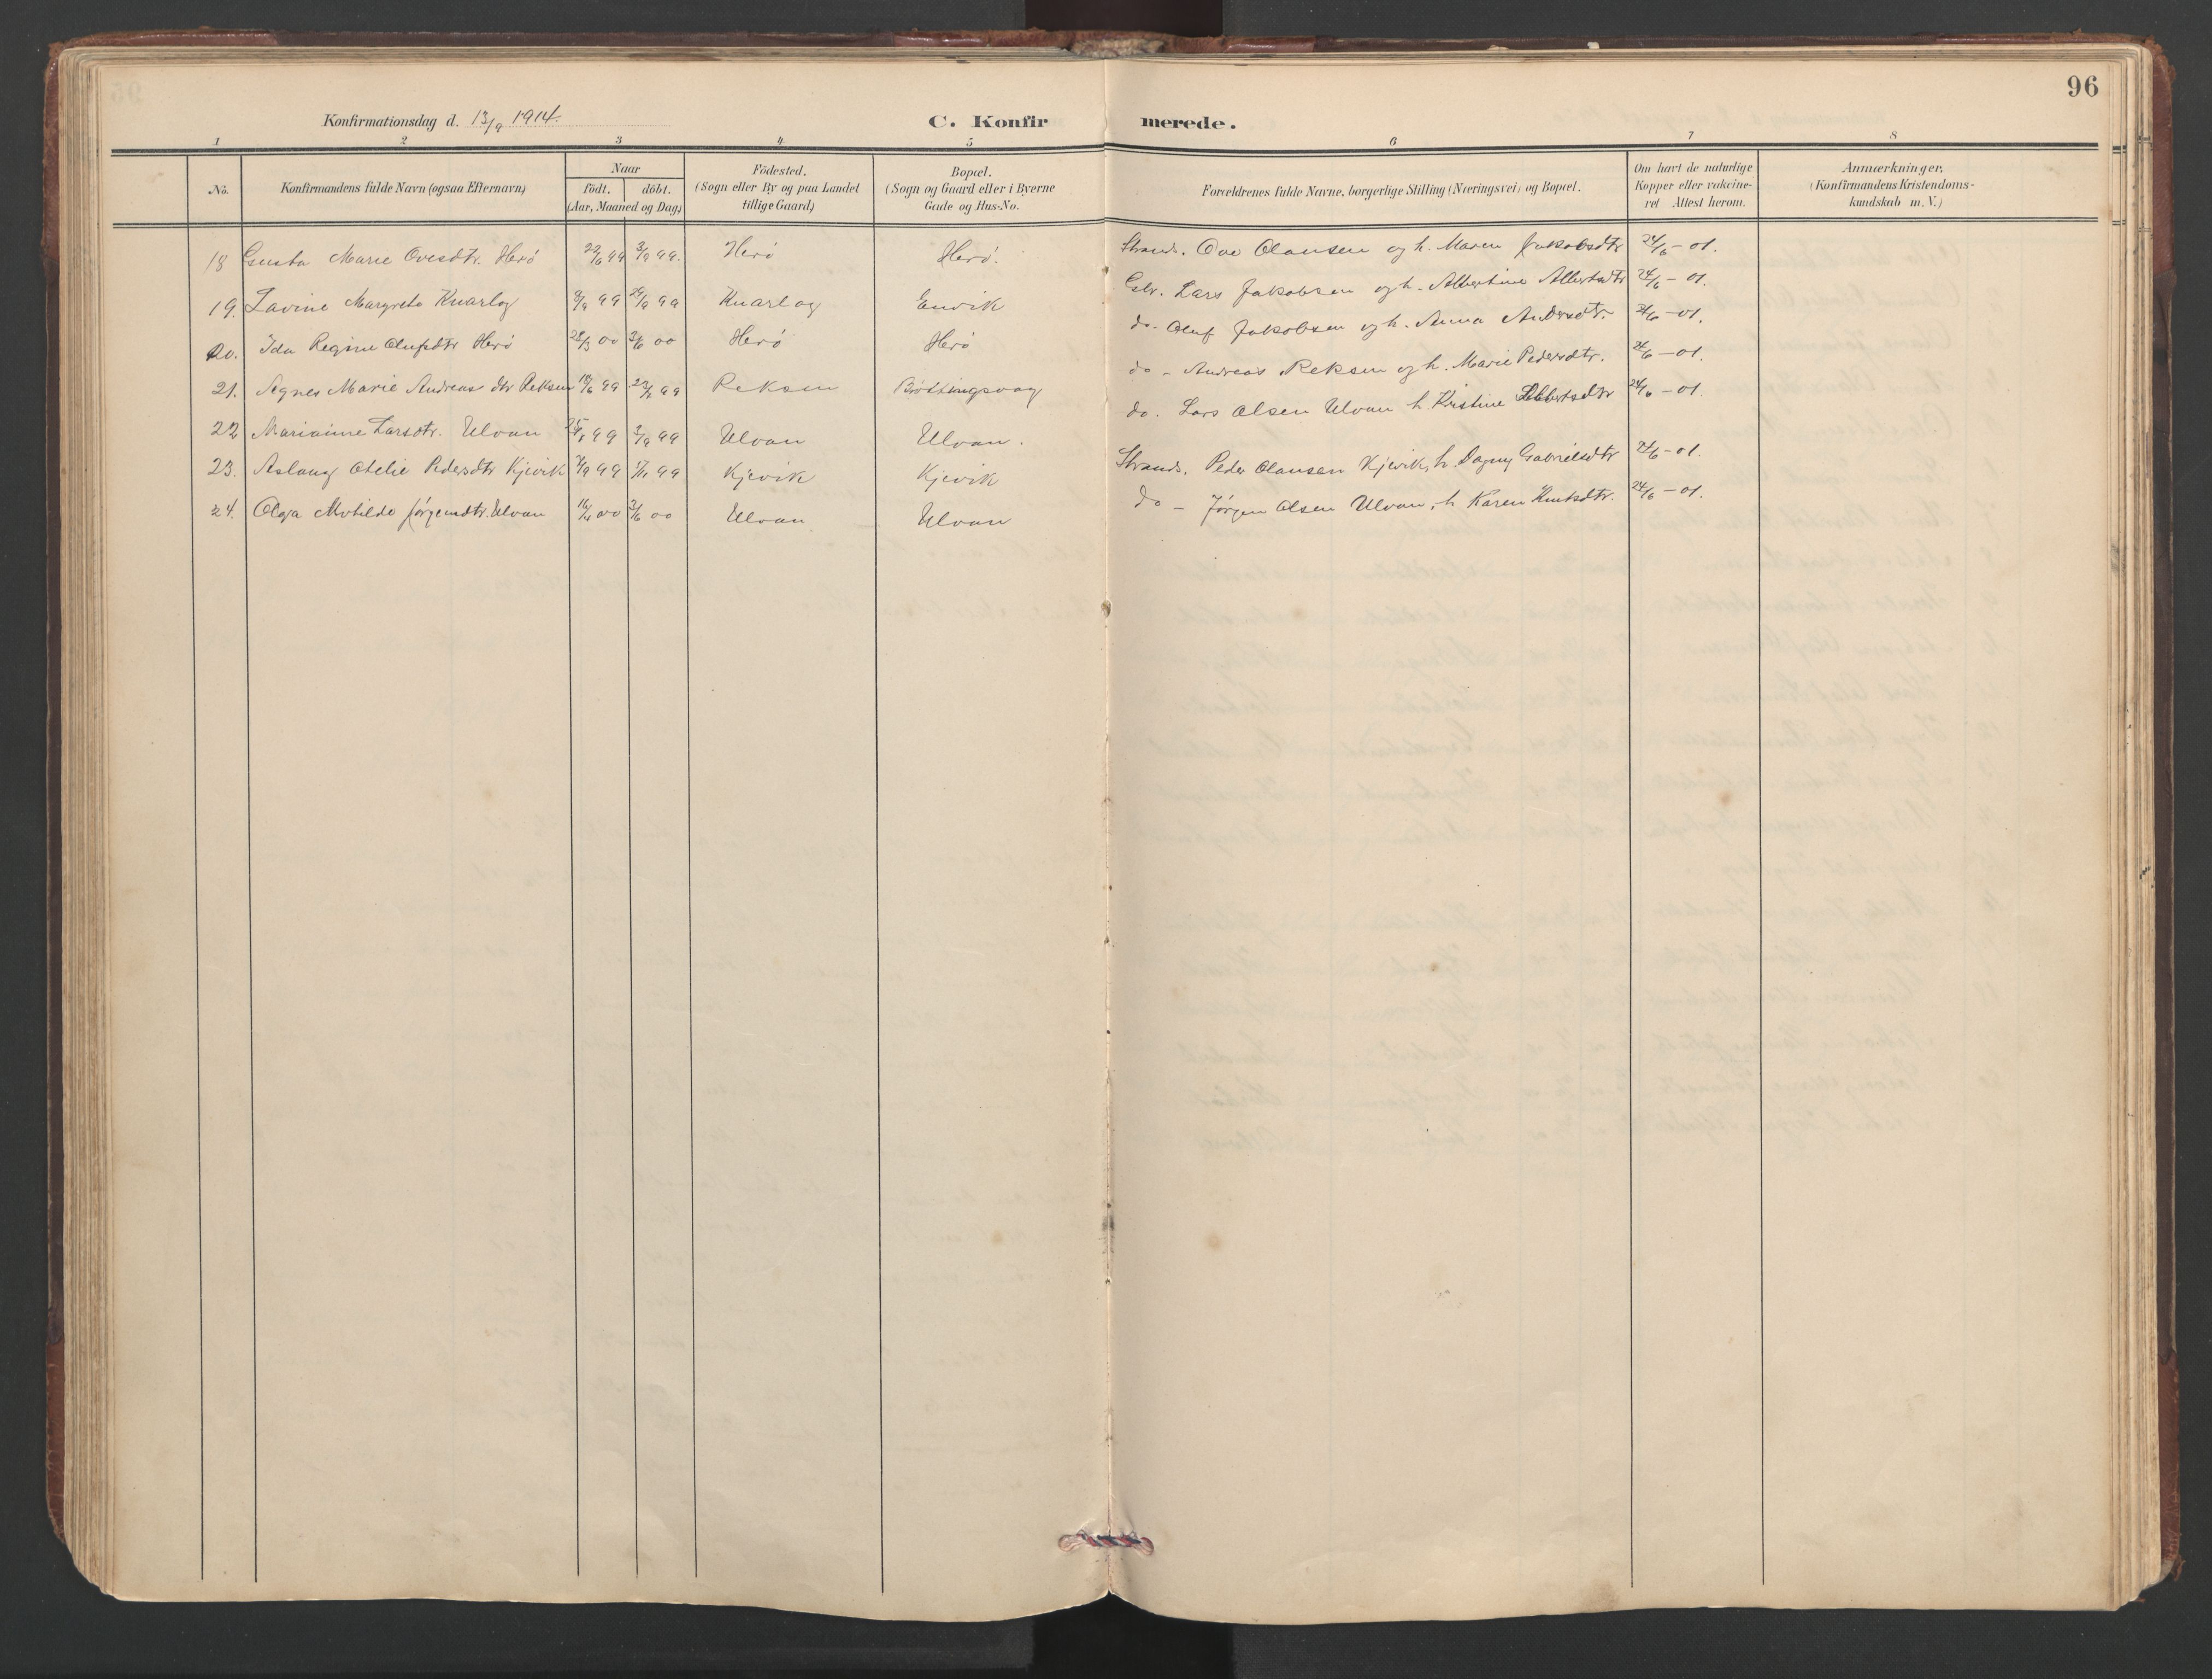 96
Konfirmationsdag d. 13/9 1914.
C. Konfirmerede.
1 2 3 4 5 6 7 8
No.
Konfirmandens fulde Navn (ogsaa Efternavn)
Naar
födt. döbt.
(Aar, Maaned og Dag)
Födested.
(Sogn eller By og paa Landet
tillige Gaard)
Bopæl.
(Sogn og Gaard eller i Byerne
Gade og Hus-No.
Forældrenes fulde Navne, borgerlige Stilling (Næringsvei) og Bopæl.
Om havt de naturlige
Kopper eller vakcine-
ret Attest herom.
Anmærkninger,
(Konfirmandens Kristendoms-
kundskab m. V.)
18 Gusta Marie Ovesdtr. Herö 99 3/9 99. Herö Herö. Strands. Ove Olausen og h. Maren Jakobsdtr 24/6 – 01.
19. Lavine Margrete Knarlag 8/9 99 24/9 99 Knarlag Envik Gbr. Lars Jakobsen og h. Albertine Albertsdtr 24/6 – 01.
20. Ida Regine Olufsdtr Herö 28/3 00 3/6 00 Herö Herö do. Oluf Jakobsen og h. Anna Andersdtr. 24/6 – 01.
21. Agnes Marie Andreasdtr Reksen 18/6 99 99 Reksen do – Andreas Reksen og h. Marie Pedersdtr. 24/6 – 01.
22 Marianne Larsdtr. Ulvan 99 3/9 99 Ulvan Ulvan. do. Lars Olsen Ulvan h. Kristine 24/6 – 01
23. Aslaug Otelie Pedersdtr Kjevik 99 99 Kjevik Kjevik Strands. Peder Olausen Kjevik, h. Dagny Gabrielsdtr 24/6 – 01.
24. Olga Mathilde Jørgensdtr. Ulvan 16/4 00 3/6 00 Ulvan Ulvan do – Jørgen Olsen Ulvan, h Karen Knutsdtr. 24/6 – 01.